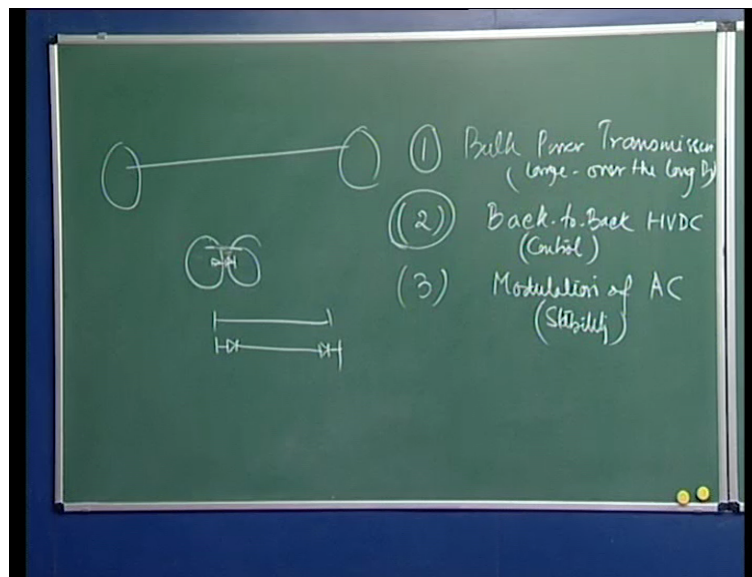 (1) Bulk Power Transmission
(large - over the long D)
(2) Back-to-Back HVDC
(Control)
(3) Modulation of AC
(Stability)